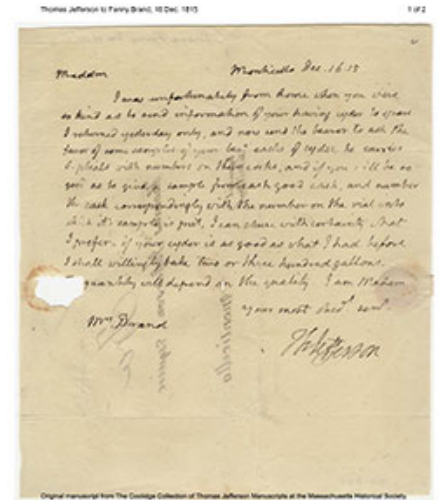 Thomas Jefferson to Fanny Brand, 16 Dec. 1815
1 of 2
Madam Monticello Dec. 16. 15
I was unfortunately from home when you were
so kind as to send information of your having cyder to spare
I returned yesterday only, and now send the bearer to ask the
favor of some samples of your casks of cyder. he carries
phials with numbers on the corks, and if you will be so
good as to give a sample from each good cask, and number
the cask correspondingly with the number on the vial into
which it's sample is put, I can chuse with certainty that
I prefer. if your cyder is as good as what I had before
I shall willingly take two or three hundred gallons.
quantity will depend on the quality. I am Madam
your most obedt. servt.
Mrs. Brand
Th: Jefferson
Original manuscript from The Coolidge Collection of Thomas Jefferson Manuscripts at the Massachusetts Historical Society